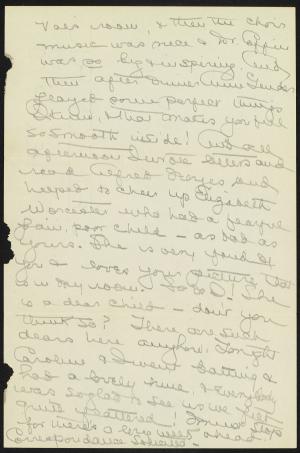 Val's room, & then the choir
music was nice & Dr. Coffin
was so big & inspiring. And
then after dinner Miss
played some perfect things
& that makes you feel
so smooth inside! And all
afternoon I wrote letters and
read Alfred Noyes, and
helped to cheer up Elizabeth
Worcester who had a fearful
pain, poor child - as bad as
yours. She is very fond of
you & loves your picture that
is in my room. So do I! She
is a dear child - don't you
think so? There are such
dears here anyhow. Tonight
Caroline & I went batting &
had a lovely time, & everybody
was so glad to see us we felt
quite flattered! I must stop
for there's a long week ahead.
Correspondance